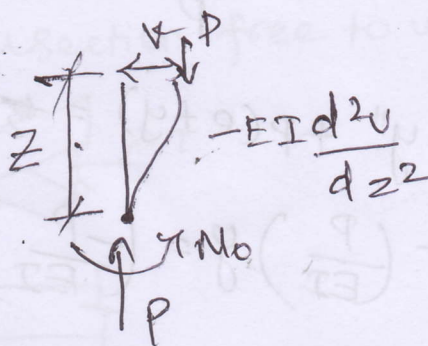 v P
Z
-EI d²v
dz²
Mo
P